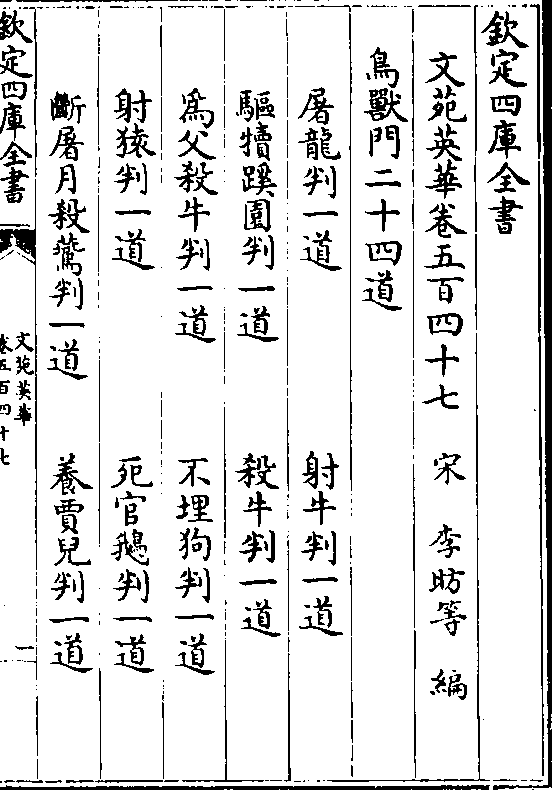 欽定四庫全書
文苑英華卷五百四十七　宋　李昉等　編
鳥獸門二十四道
屠龍判一道　射牛判一道
驅犢蹊園判一道　殺牛判一道
為父殺牛判一道　不埋狗判一道
射猿判一道　死官鵝判一道
斷屠月殺鷰判一道　養賈兒判一道
欽定四庫全書
文苑英華
卷五百四十七
一